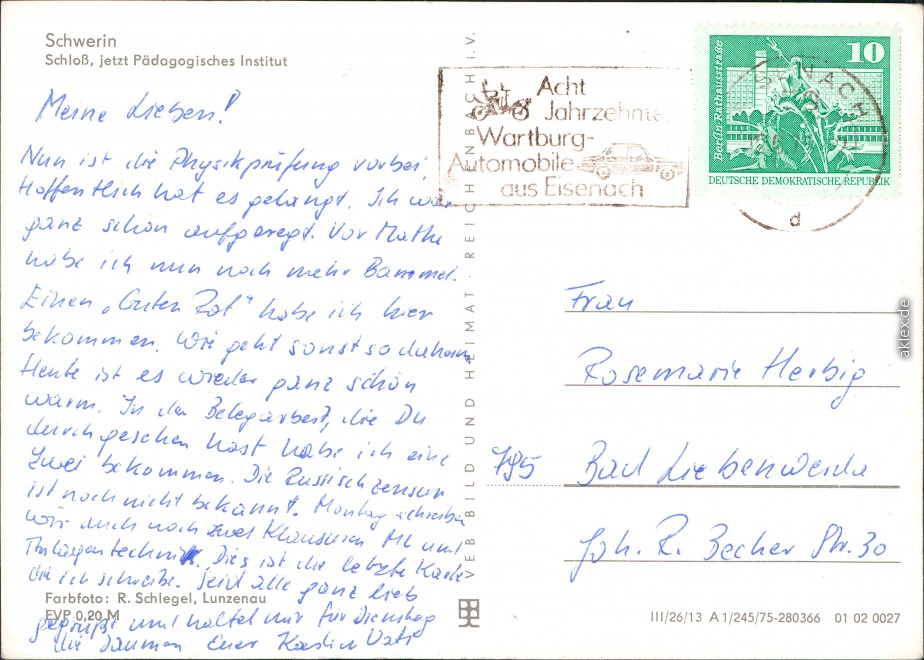 Schwerin
Schloß, jetzt Pädagogisches Institut
Meine Lieben!
Nun ist die Physikprüfung vorbei.
Hoffentlich hat es gelangt. Ich war
ganz schön aufgeregt. Vor Mathe
habe ich nun noch mehr Bammel.
Einen "Guten Rat" habe ich hier
bekommen. Wie geht sonst so daheim
Heute ist es wieder ganz schön
warm. In der Belegarbeit, die Du
durchgesehen hast habe ich eine
Zwei bekommen. Die Russischzensur
ist noch nicht bekannt. Montag schreiben
wir auch noch zwei Klausuren ML und
Anlagentechnik. Dies ist die letzte Karte
die ich schreibe. Seid alle ganz lieb
gegrüßt und haltet mir für Dienstag
die Daumen Eure
Farbfoto: R. Schlegel, Lunzenau
EVP 0,20 M
VEB BILD UND HEIMAT REICHENBACH i. V.
Acht
Jahrzehnte
Wartburg-
Automobile
aus Eisenach
d
10
Berlin-Rathausstraße
DEUTSCHE DEMOKRATISCHE REPUBLIK
Frau
Rosemarie Herbig
795 Bad Liebenwerda
Joh. R. Becher Str. 30
III/26/13 A 1/245/75-280366 01 02 0027
aklex.de